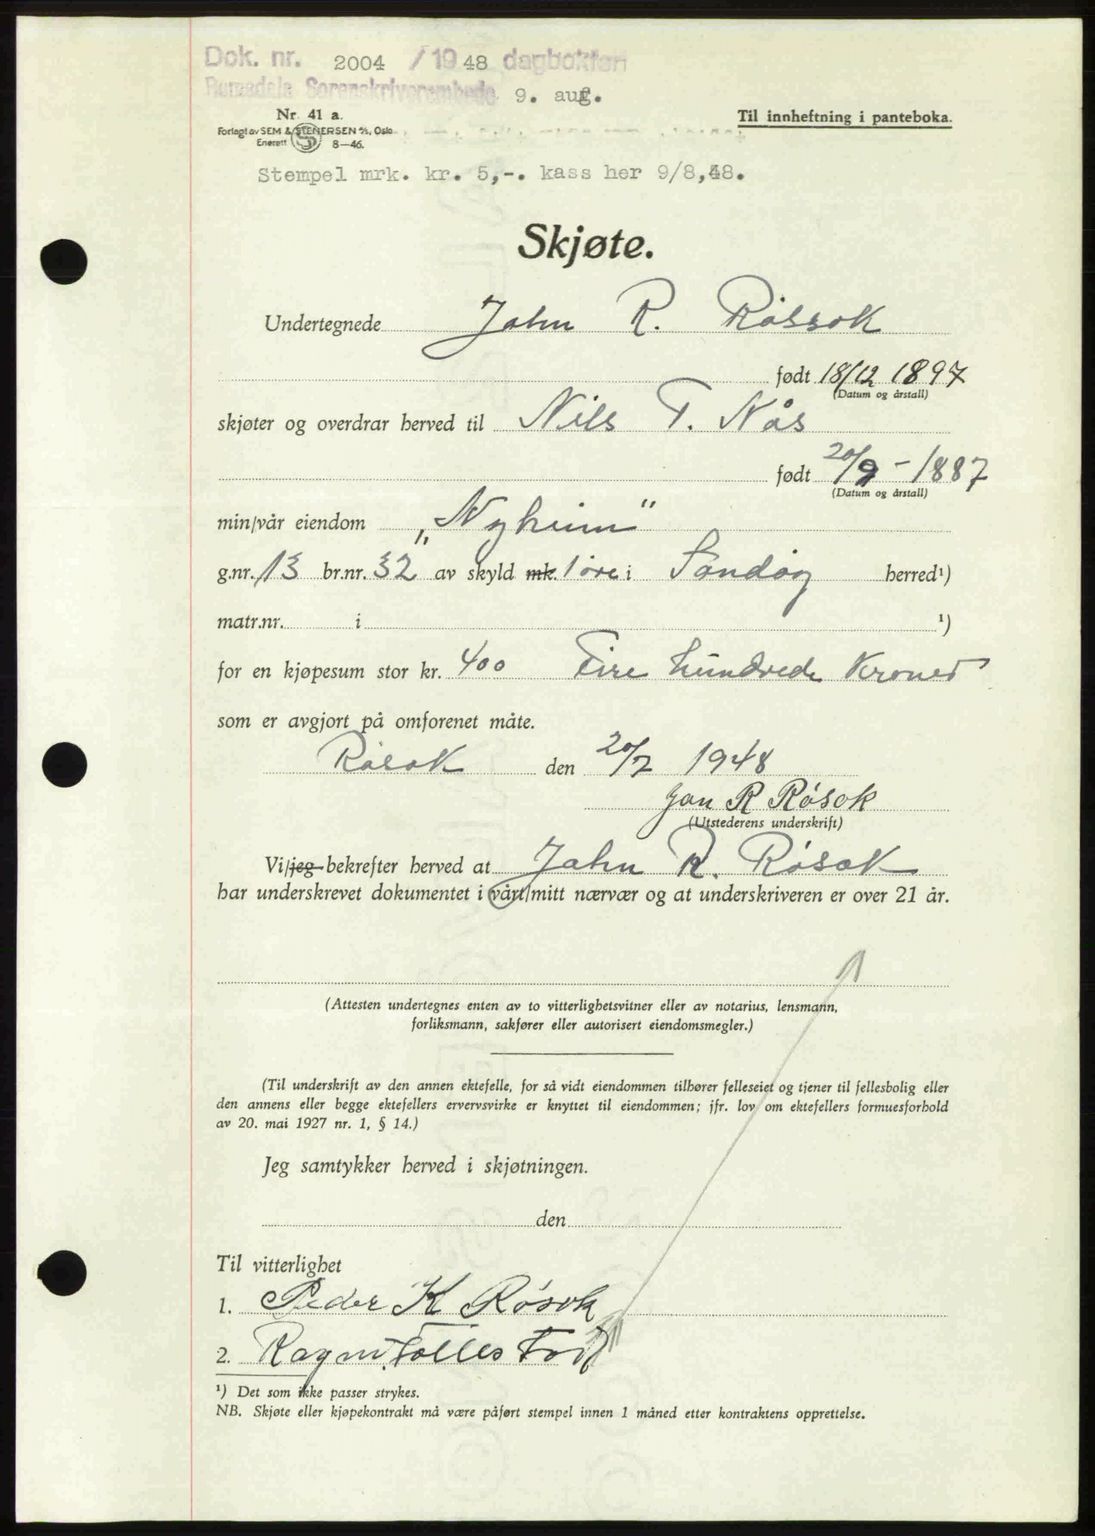 Dok. nr. 2004 / 1948 dagbokført
Romsdals Sorenskriverembede 9. aug.
Nr. 41 a.
Til innheftning i panteboka.
Forlagt av SEM & STENERSEN A/S, Oslo
Enerett 8-46.
Stempel mrk. kr. 5,-. kass her 9/8,48.
Skjøte.
Undertegnede John R. Røssok
født 18/12 1897
(Datum og årstall)
skjøter og overdrar herved til Nils T. Nås
født 20/9 - 1887
(Datum og årstall)
min/vår eiendom „Nyheim"
g.nr. 13 br.nr. 32 av skyld mk. 1 øre i Sandøy herred¹)
matr.nr. i ¹)
for en kjøpesum stor kr. 400 Fire hundrede Kroner
som er avgjort på omforenet måte.
Røsok den 20/7 1948
Jon R Røsok
(Utstederens underskrift)
Vi/jeg bekrefter herved at John R. Røsok
har underskrevet dokumentet i vårt/mitt nærvær og at underskriveren er over 21 år.
(Attesten undertegnes enten av to vitterlighetsvitner eller av notarius, lensmann,
forliksmann, sakfører eller autorisert eiendomsmegler.)
(Til underskrift av den annen ektefelle, for så vidt eiendommen tilhører felleseiet og tjener til fellesbolig eller
den annens eller begge ektefellers ervervsvirke er knyttet til eiendommen; jfr. lov om ektefellers formuesforhold
av 20. mai 1927 nr. 1, § 14.)
Jeg samtykker herved i skjøtningen.
den
Til vitterlighet
1. Peder K Røsok
2. Ragnv.
¹) Det som ikke passer strykes.
NB. Skjøte eller kjøpekontrakt må være påført stempel innen 1 måned etter kontraktens opprettelse.